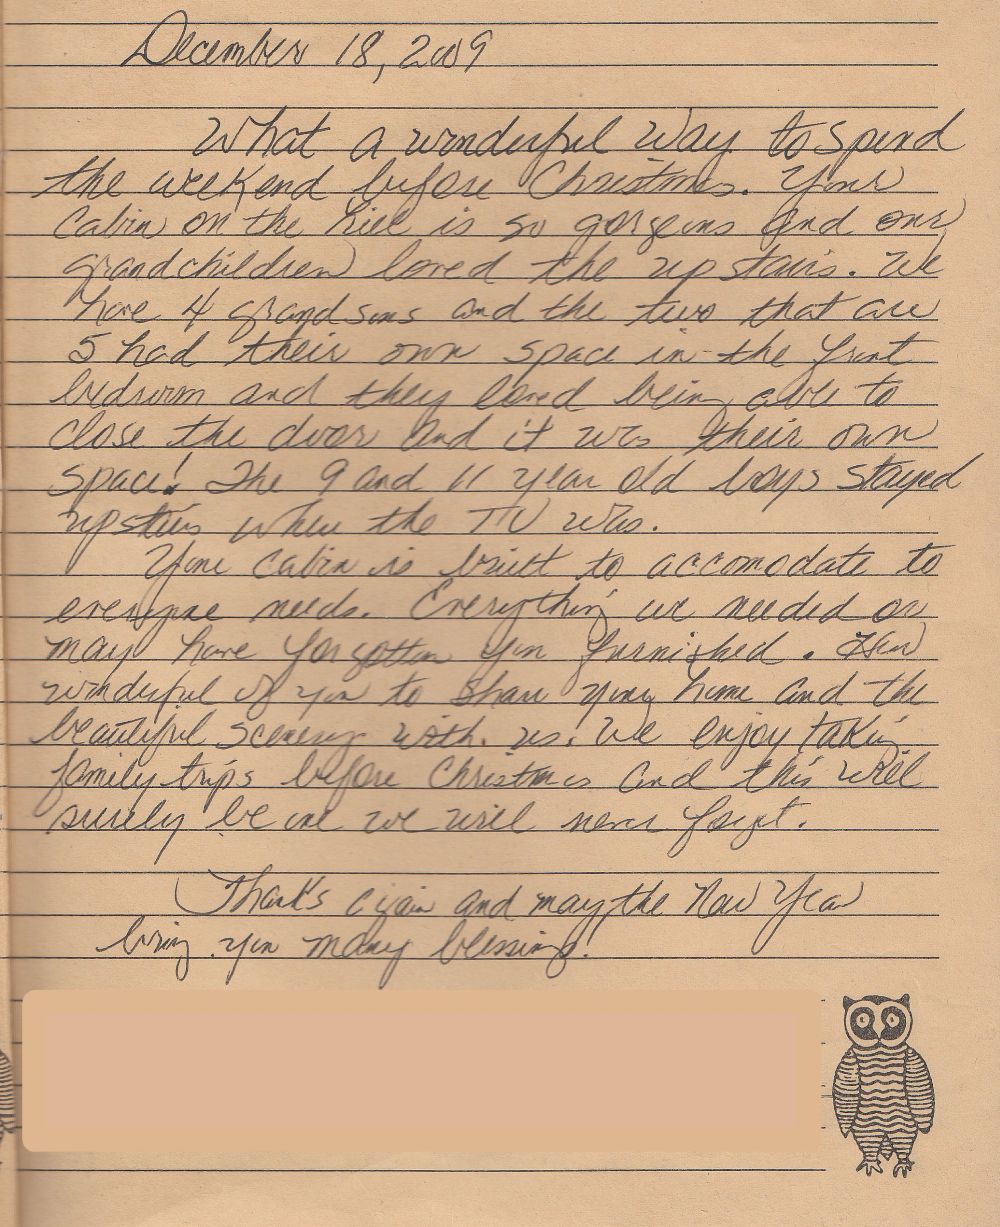 December 18, 2009
What a wonderful way to spend
the weekend before Christmas. Your
Cabin on the hill is so gorgeous and our
grandchildren loved the upstairs. We
have 4 grandsons and the two that are
5 had their own space in the front
bedroom and they loved being able to
close the door and it was their own
space! The 9 and 11 year old boys stayed
upstairs where the TV was.
Your cabin is built to accomodate to
everyone needs. Everything we needed or
may have forgotten you furnished. How
wonderful of you to share your home and the
beautiful scenery with us. We enjoy taking
family trips before Christmas and this will
surely be one we will never forget.
Thanks again and may the New Year
bring you many blessings.